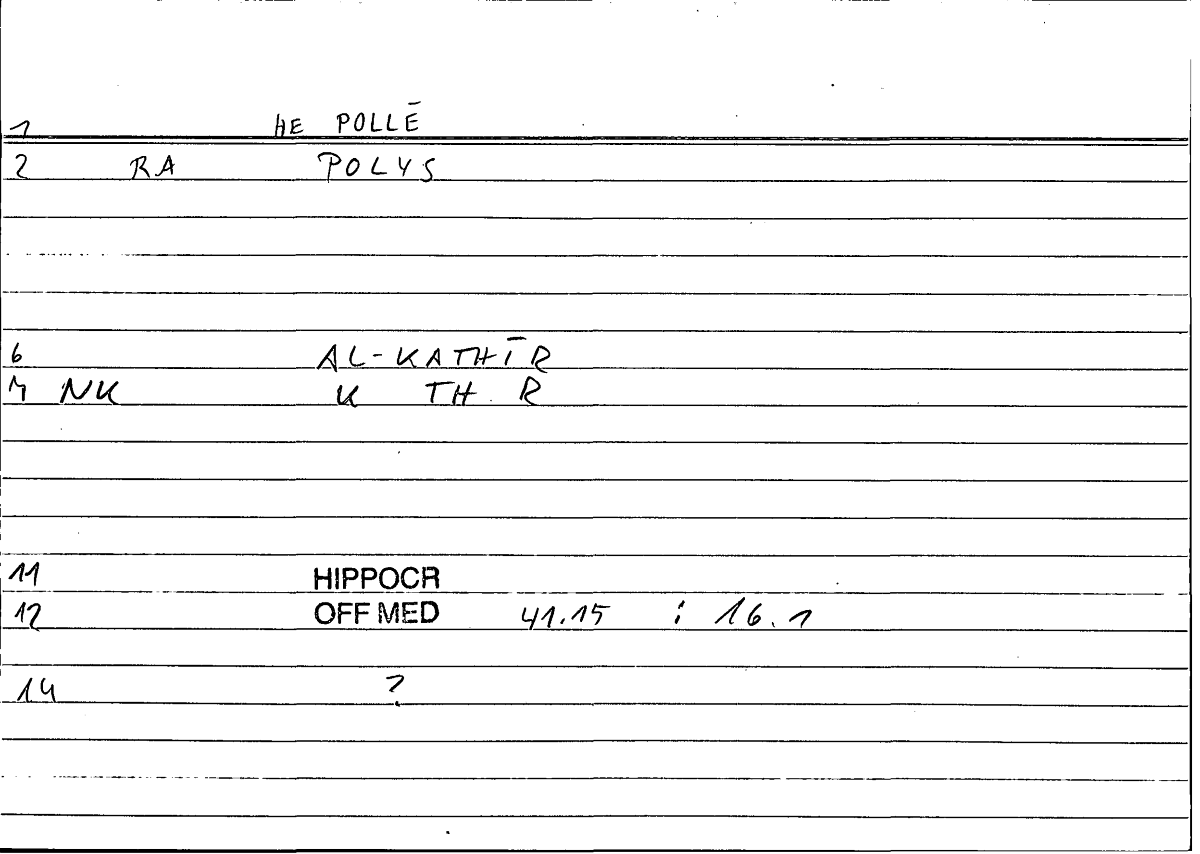 1 HE POLLĒ
2 RA POLYS
6 AL-KATHĪR
7 NK K TH R
11 HIPPOCR
12 OFF MED 41.15 : 16.1
14 ?